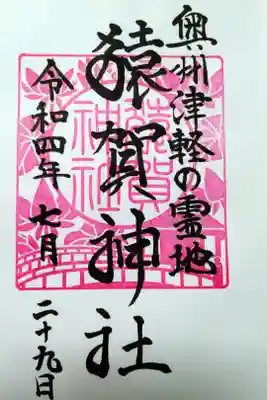 奥州津軽の霊地
猿賀神社
令和四年 七月 二十九日
猿賀
神社